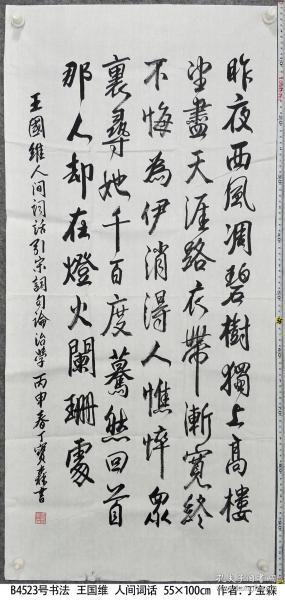 昨夜西風凋碧樹獨上高樓
望盡天涯路衣帶漸寬終
不悔為伊消得人憔悴眾
裏尋她千百度驀然回首
那人却在燈火闌珊處
王國維人间词话引宋詞句論治學丙申春丁寶森書
B4523号书法 王国维 人间词话 55×100cm 作者:丁宝森